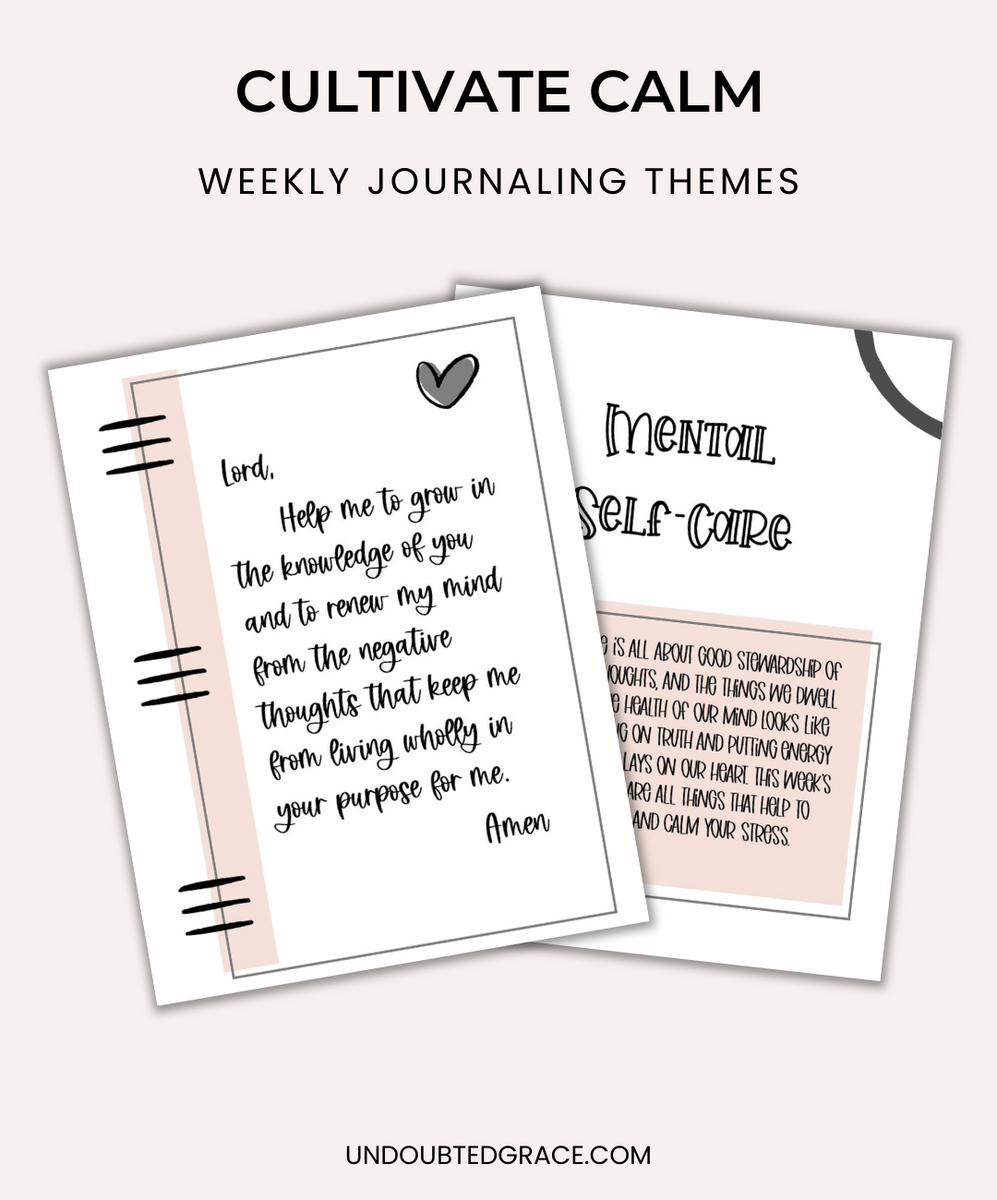 CULTIVATE CALM
WEEKLY JOURNALING THEMES
Lord,
Help me to grow in
the knowledge of you
and to renew my mind
from the negative
thoughts that keep me
from living wholly in
your purpose for me.
Amen
Mental
Self-Care
IS ALL ABOUT GOOD STEWARDSHIP OF
AND THE THINGS WE DWELL
HEALTH OF OUR MIND LOOKS LIKE
ON TRUTH AND PUTTING ENERGY
LAYS ON OUR HEART. THIS WEEK'S
ARE ALL THINGS THAT HELP TO
AND CALM YOUR STRESS.
UNDOUBTEDGRACE.COM